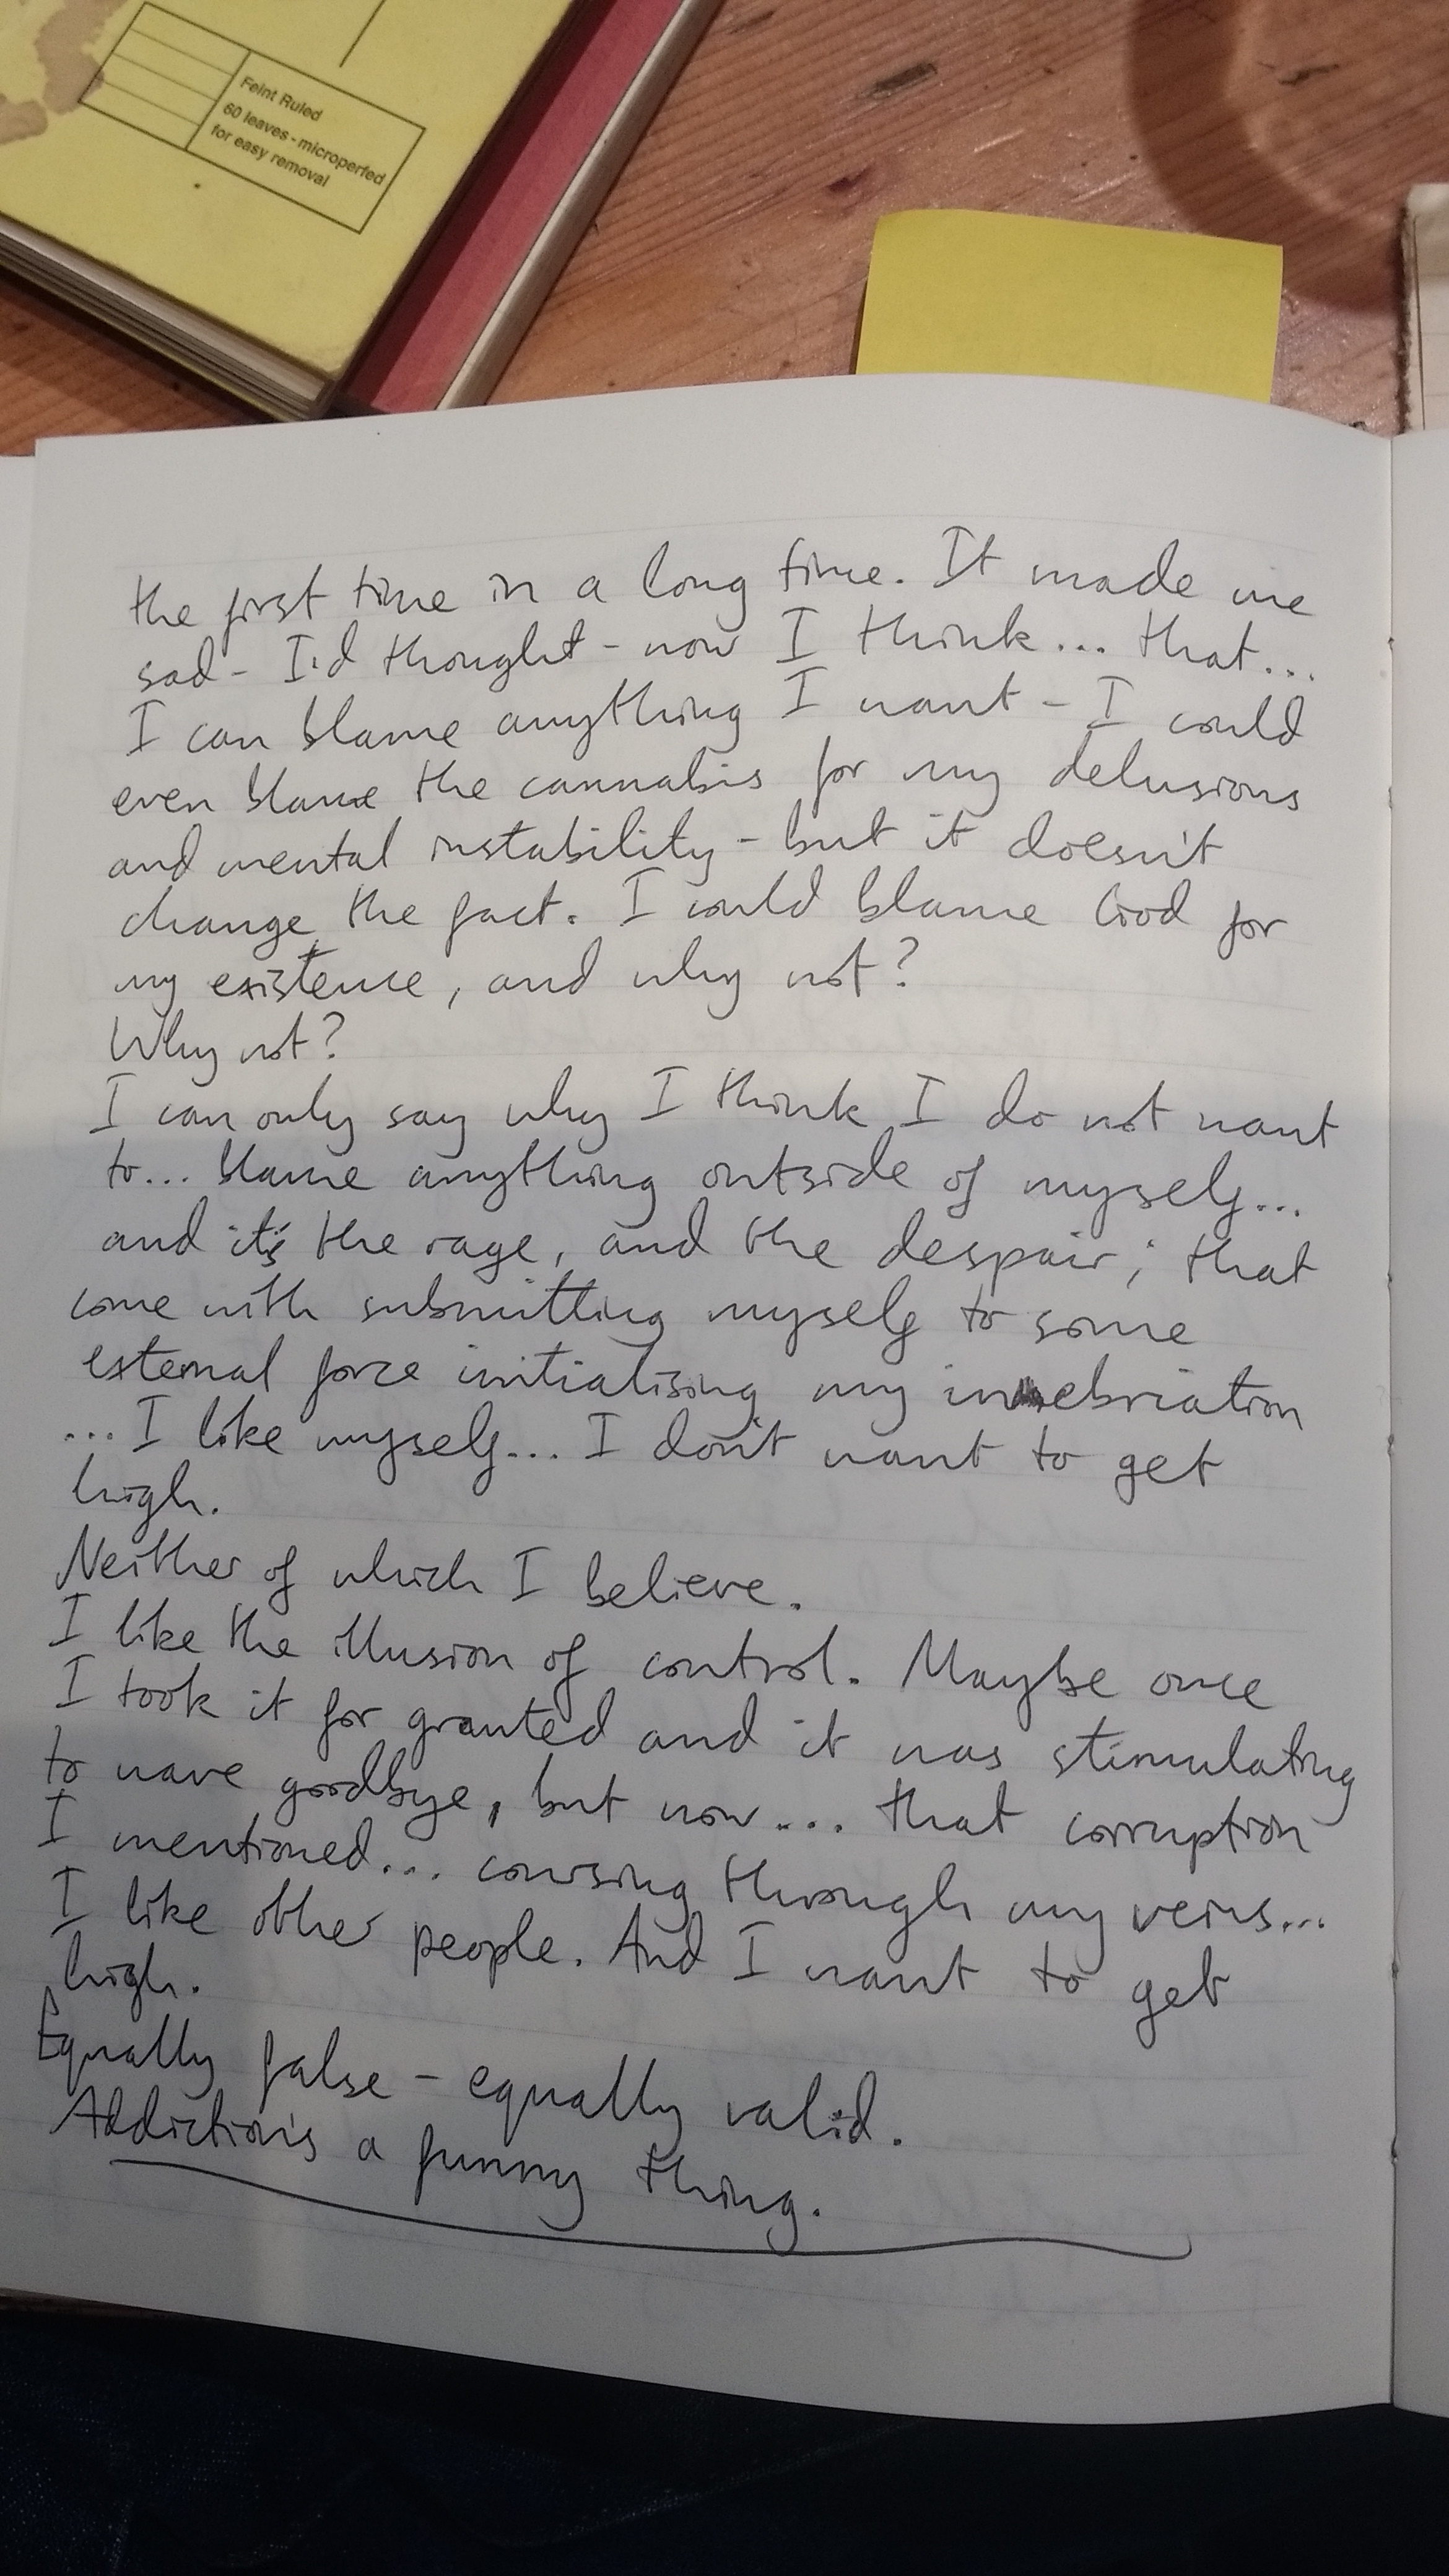 Feint Ruled
60 leaves - microperfed
for easy removal
the first time in a long time. It made me
sad - I'd thought - now I think... that...
I can blame anything I want - I could
even blame the cannabis for my delusions
and mental instability - but it doesn't
change the fact. I could blame God for
my existence, and why not?
Why not?
I can only say why I think I do not want
to... blame anything outside of myself...
and it's the rage, and the despair; that
come with submitting myself to some
external force initialising my inebriation
...I like myself... I don't want to get
high.
Neither of which I believe.
I like the illusion of control. Maybe once
I took it for granted and it was stimulating
to wave goodbye, but now... that corruption
I mentioned... coursing through my veins...
I like other people. And I want to get
high.
Equally false - equally valid.
Addiction's a funny thing.